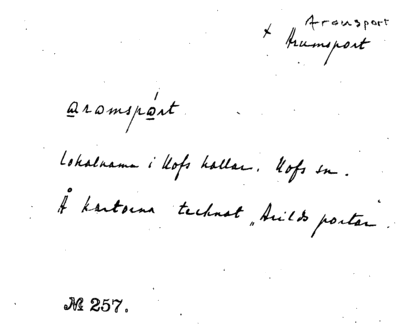 Aramsport
+ Arumsport
aramspárt
Lokalnamn i Hofs hallar. Hofs sn.
Å kartorna tecknat „Arilds portar"
№ 257.